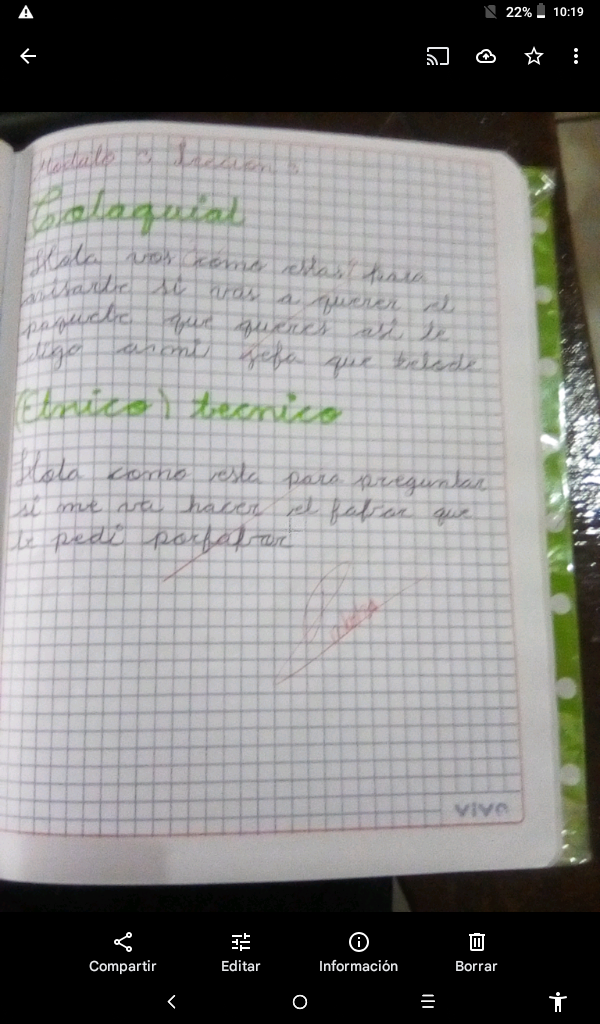 22% 10:19
Modulo 3 leccion 3
Colaquial
Hola vos ¿cómo estas? para
avisarte si vas a querer el
paquete que queres asi le
digo a mi gefa que telode
(Etnico) tecnico
Hola como esta para preguntar
si me va hacer el fabor que
le pedi porfabor
VIVO
Compartir Editar Información Borrar